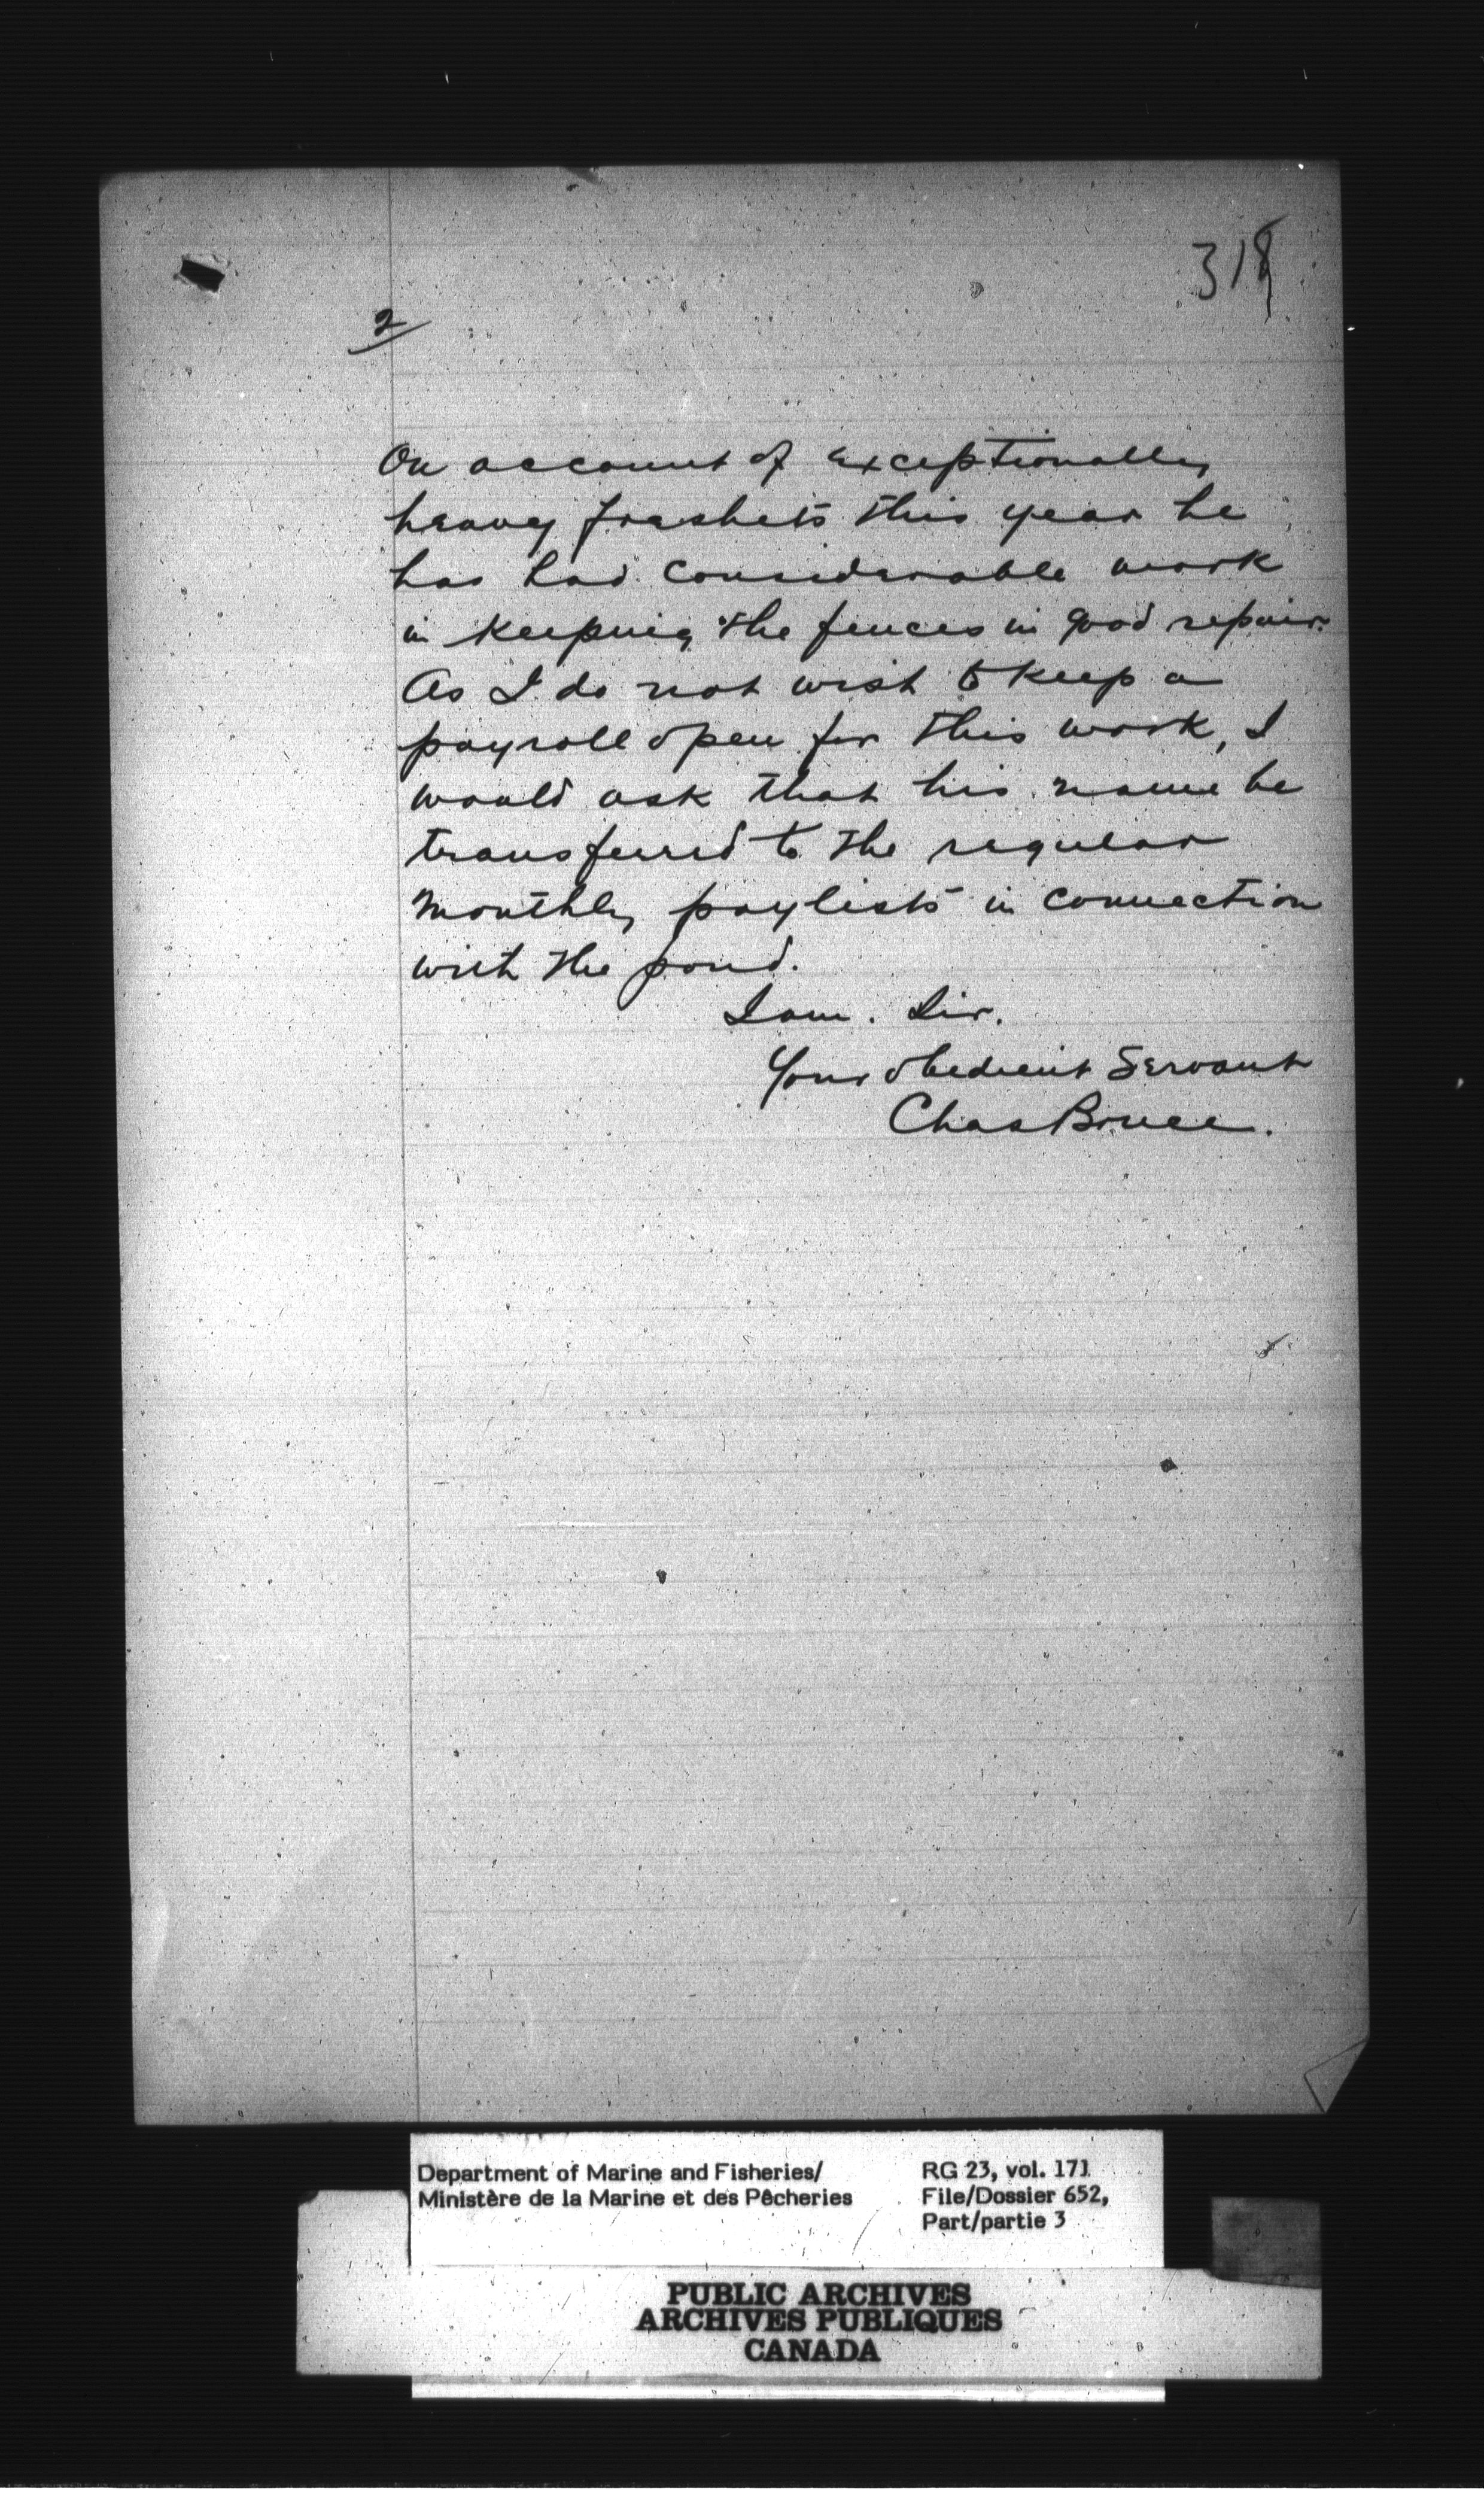 318
2
On account of exceptionally
heavy freshets this year he
has had considerable work
in keeping the fences in good repair.
As I do not wish to keep a
payroll open for this work, I
would ask that his name be
transferred to the regular
monthly paylists in connection
with the pond.
I am. Sir.
Your obedient Servant
Chas Bruce.
Department of Marine and Fisheries/
Ministère de la Marine et des Pêcheries
RG 23, vol. 171
File/Dossier 652,
Part/partie 3
PUBLIC ARCHIVES
ARCHIVES PUBLIQUES
CANADA